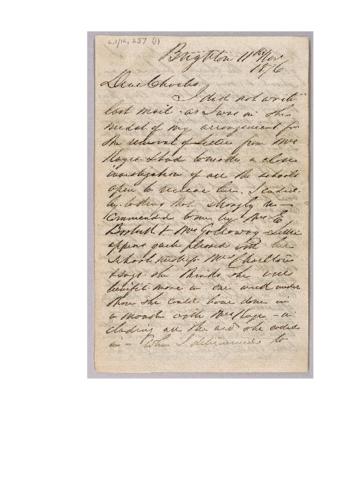 Brighton 11th Nov
1876
Dear Charles
I did not write
last mail as I was in the
midst of my arrangement for
the removal of from Mrs
& had to make a close
investigation of all the schools
open to receive her, I ended
by taking that strongly re=
commended to me by Mrs E
& Mrs Galloway
appears quite pleased with her
School mistress Mrs Charlton
& says she thinks she will
benefit more in one week under
than she would have done in
6 months with Mrs - in
cluding all the she
in - When I determined to